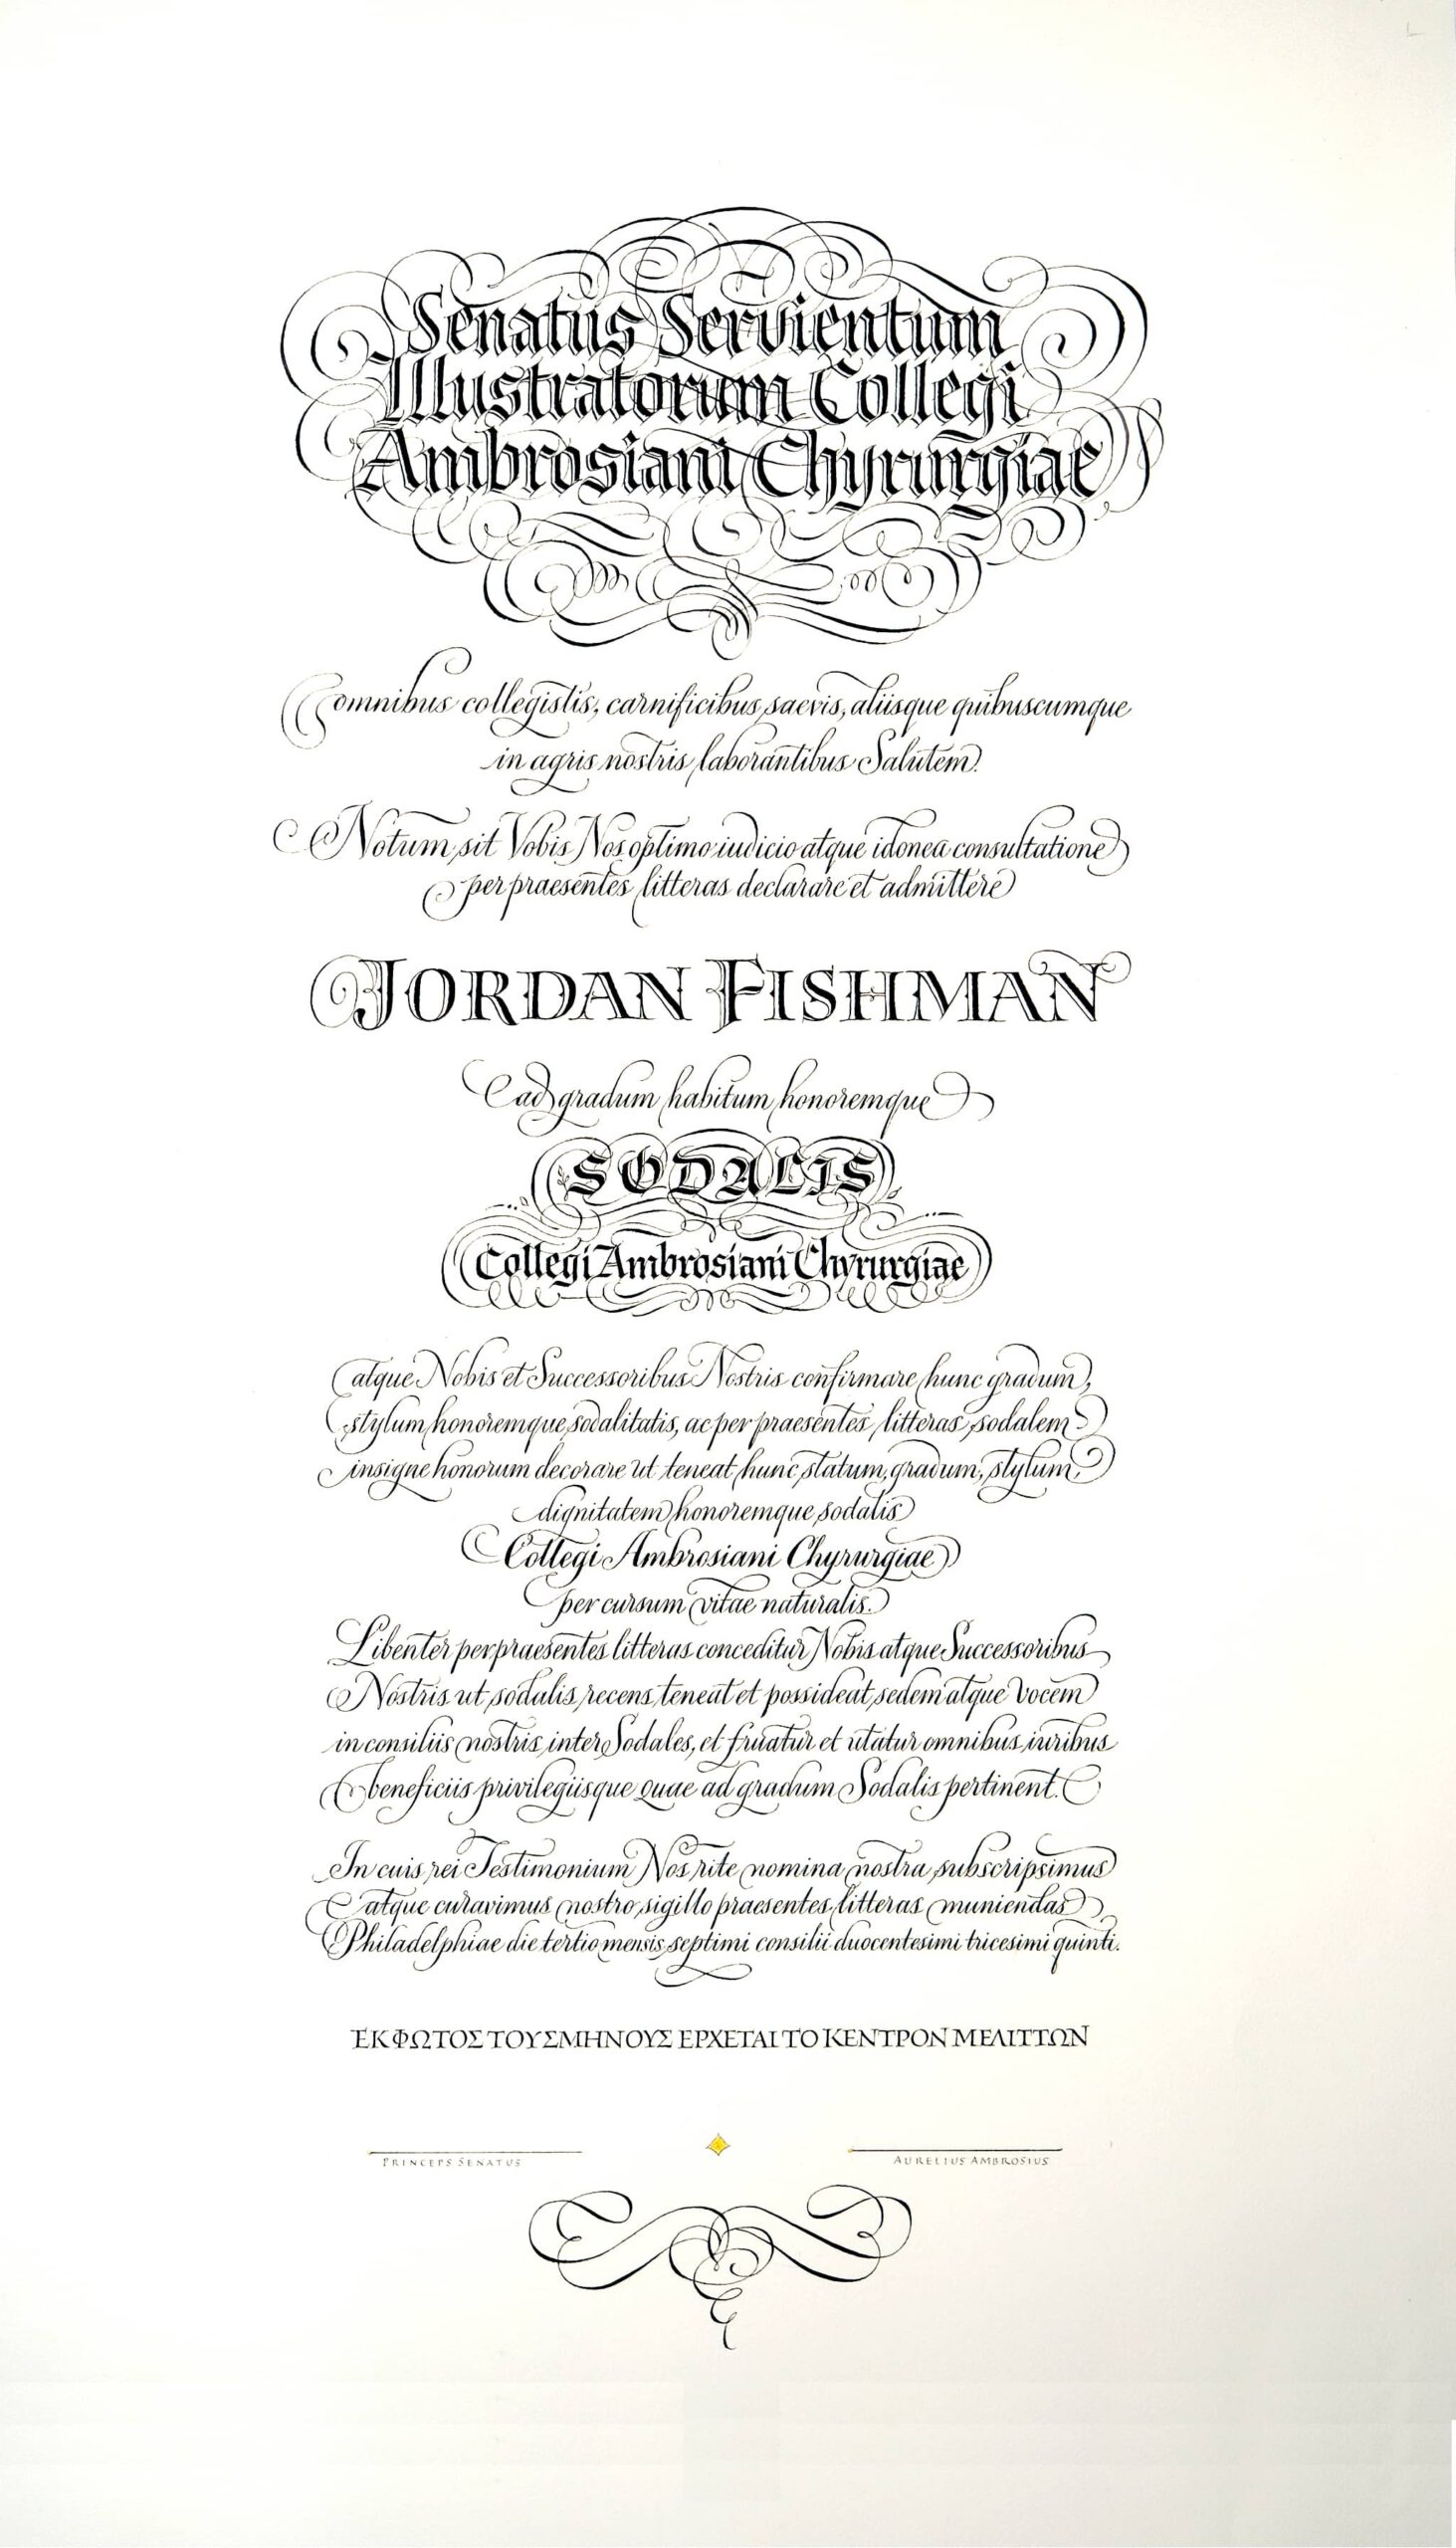 Senatus Servientum
Illustratorum Collegi
Ambrosiani Chyrurgiae
omnibus collegistis, carnificibus saevis, aliisque quibuscumque
in agris nostris laborantibus Salutem.
Notum sit Vobis Nos optimo iudicio atque idonea consultatione
per praesentes litteras declarare et admittere
JORDAN FISHMAN
ad gradum habitum honoremque
SODALIS
Collegi Ambrosiani Chyrurgiae
atque Nobis et Successoribus Nostris confirmare hunc gradum,
stylum honoremque sodalitatis, ac per praesentes litteras sodalem
insigne honorum decorare ut teneat hunc statum, gradum, stylum,
dignitatem honoremque sodalis
Collegi Ambrosiani Chyrurgiae
per cursum vitae naturalis.
Libenter per praesentes litteras conceditur Nobis atque Successoribus
Nostris ut sodalis recens teneat et possideat sedem atque vocem
in consiliis nostris inter Sodales, et fruatur et utatur omnibus iuribus
beneficiis privilegiisque quae ad gradum Sodalis pertinent.
In cuis rei Testimonium Nos rite nomina nostra subscripsimus
atque curavimus nostro sigillo praesentes litteras muniendas
Philadelphiae die tertio mensis septimi consilii duocentesimi tricesimi quinti.
ΕΚ ΦΩΤΟΣ ΤΟΥ ΣΜΗΝΟΥΣ ΕΡΧΕΤΑΙ ΤΟ ΚΕΝΤΡΟΝ ΜΕΛΙΤΤΩΝ
PRINCEPS SENATUS
AURELIUS AMBROSIUS